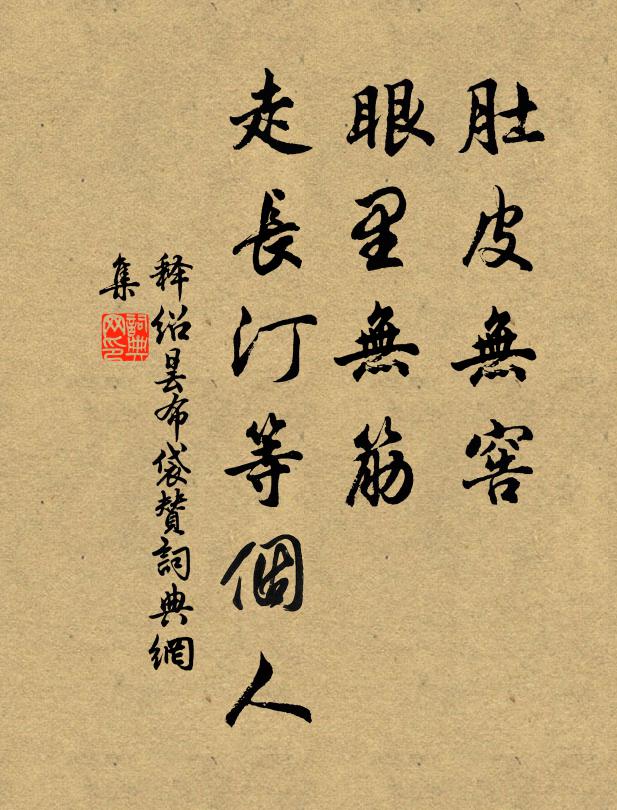 肚皮無窖
眼里無筋
走長汀等個人
释绍昙布袋赞詞典網
集
詞典网印